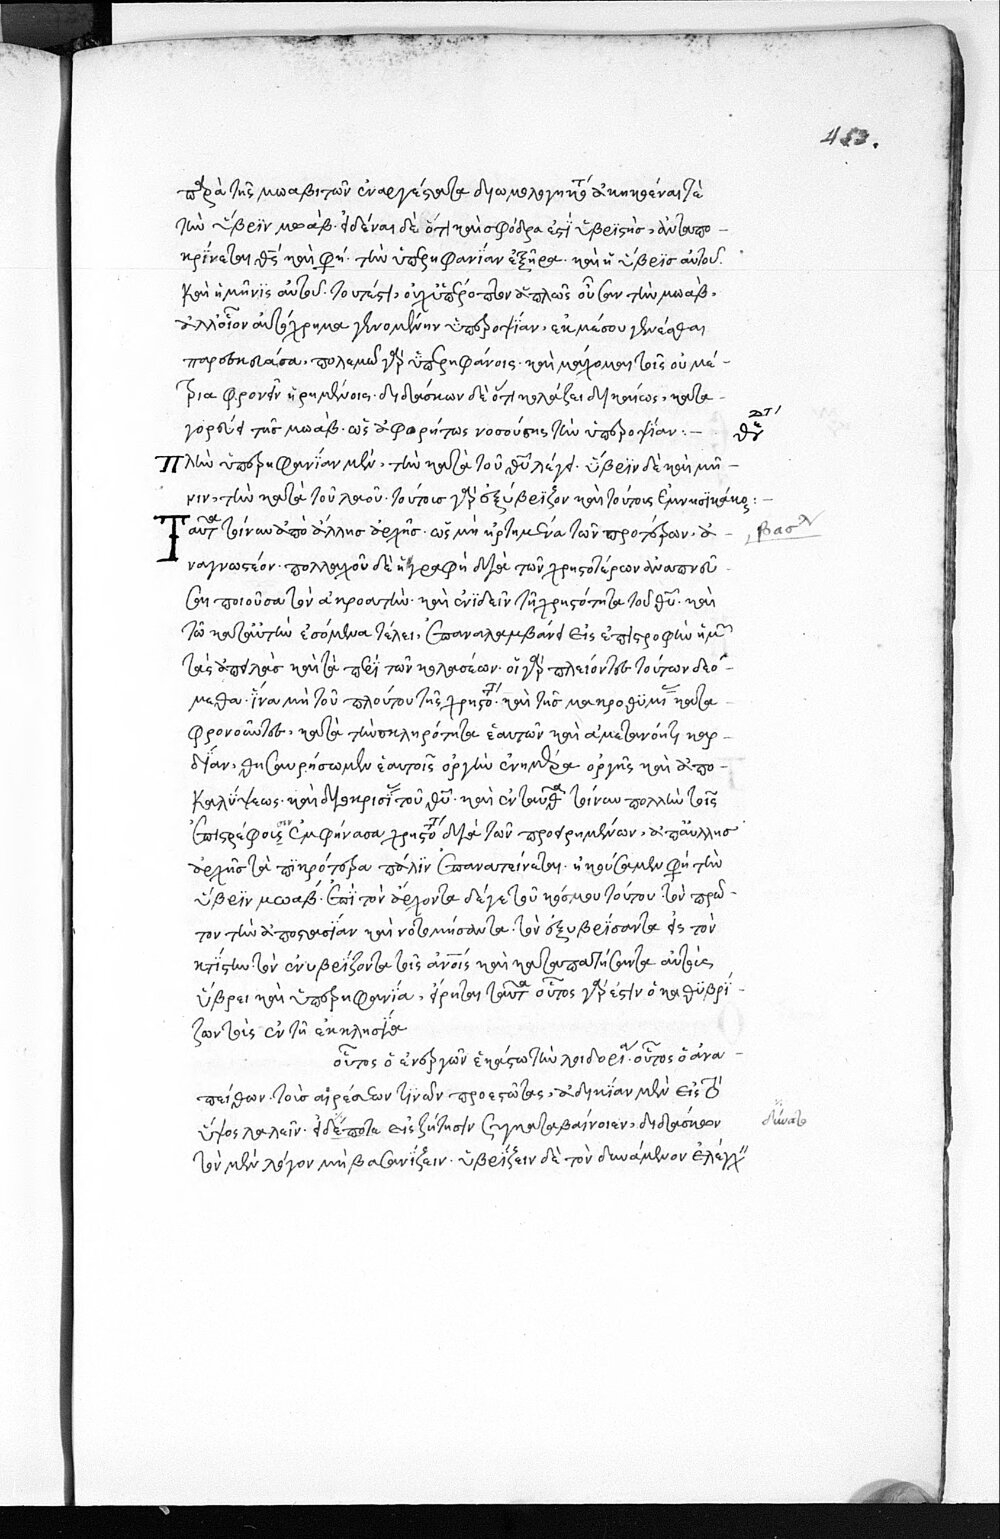 453.
παρὰ τῆς μωαβιτῶν ἐναργέστατα διωμολογηκότ ἀκηκοέναι τὲ
τὴν ὕβριν μωάβ. εἰδέναι δὲ ὅτι καὶ σφόδρα ἐστὶ ὑβριστὴς, ἀνταπο-
κρίνεται θς καὶ φη. τὴν ὑπερηφανίαν ἐξῆρα. καὶ ἡ ὕβρις αὐτοῦ.
Καὶ ἡ μῆνις αὐτοῦ. τουτέστι, οὐχ ὑπέροπτον ἁπλῶς οὖσαν τὴν μωὰβ,
ἀλλ' οἷον αὐτόχρημα γενομένην ὑπεροψίαν, ἐκ μέσου γενέσθαι
παρεσκεύασα, πολεμῶ γὰρ ὑπερηφάνοις. καὶ μάχομαι τοῖς οὐ μέ-
τρια φρονεῖν ᾑρημένοις. διδάσκων δὲ ὅτι κολάζει δικαίως, κατα-
γορεύει τῆς μωάβ. ὡς ἀφορήτως νοσούσης τὴν ὑπεροψίαν: -
τὴν ὑπερηφανίαν μὲν, τὴν κατὰ τοῦ θυ λέγει. ὕβριν δὲ καὶ μῆ-
νιν, τὴν κατὰ τοῦ λαοῦ. τούτοις γὰρ ἐξύβριζον καὶ τούτοις ἐμνησικάκουν: -
Ταῦτα τοίνυν ἀπὸ ἄλλης ἀρχῆς. ὡς μὴ ἠρτημένα τῶν προτέρων, ἀ- βασλ
ναγνωστέον. πολλαχοῦ δὲ ἡ γραφὴ διὰ τῶν χρηστοτέρων ἀναπνεῦ-
σαι ποιοῦσα τὸν ἀκροατὴν. καὶ ἐνιδεῖν τῇ χρηστότητα τοῦ θυ. καὶ
τῶ κατ αὐτὴν ἐσόμενα τέλει, ἐπαναλαμβάνει εἰς ἐπιστροφὴν ἡμῶν
τὰς ἀπειλὰς καὶ τὰ περὶ τῶν κολάσεων. οἱ γὰρ πλείοντες τούτων δεό-
μεθα. ἵνα μὴ τοῦ πλούτου τῆς χρηστότ. καὶ τῆς μακροθυμί κατα-
φρονοῦντες, κατὰ τὴν σκληρότητα ἑαυτῶν καὶ ἀμετανόητ καρ-
δίαν, θησαυρήσωμεν ἑαυτοῖς ὀργὴν ἐν ἡμέρα ὀργῆς καὶ ἀπο-
Καλύψεως. καὶ δικαιοκρισί τοῦ θυ. καὶ ἐνταῦθα τοίνυν πολλὴν τοῖς
Ἐπιστρέφουσιν ἐμφήνασα χρηστότ διὰ τῶν προειρημένων, ἀπ ἄλλης
ἀρχῆς τὰ πικρότερα πάλιν ἐπανατείνεται. ἠκούσαμεν φη τὴν
ὕβριν μωαβ. Ἐπὶ τὸν ἄρχοντα λέγε τοῦ κόσμου τούτου. τὸν πρῶ-
τον τὴν ἀποστασίαν καινοτομήσαντα. τὸν ἐξυβρίσαντα εἰς τὸν
κτίστην. τὸν ἐνυβρίζοντα τοῖς ἀνοις καὶ καταπατήσαντα αὐτοὺς
ὕβρει καὶ ὑπερηφανία, εἴρηται ταῦτα οὗτος γάρ ἐστιν ὁ καθυβρί-
ζων τοὺς ἐν τῇ ἐκκλησία
οὗτος ὁ ἐνεργῶν ἑκάστω τὴν λοιδορίαν. οὗτος ὁ ἀνα-
πείθων. τοὺς αἱρέσεων τινῶν προεστῶτας, ἀδικίαν μὲν εἰς τὸ
ὕψος λαλεῖν. εἰ δέποτε εἰς ζήτησιν συγκαταβαίνοιεν, διδάσκων
τὸν μὲν λόγον μὴ βασανίζειν. ὑβρίζειν δὲ τὸν δυνάμενον ἐλέγχ